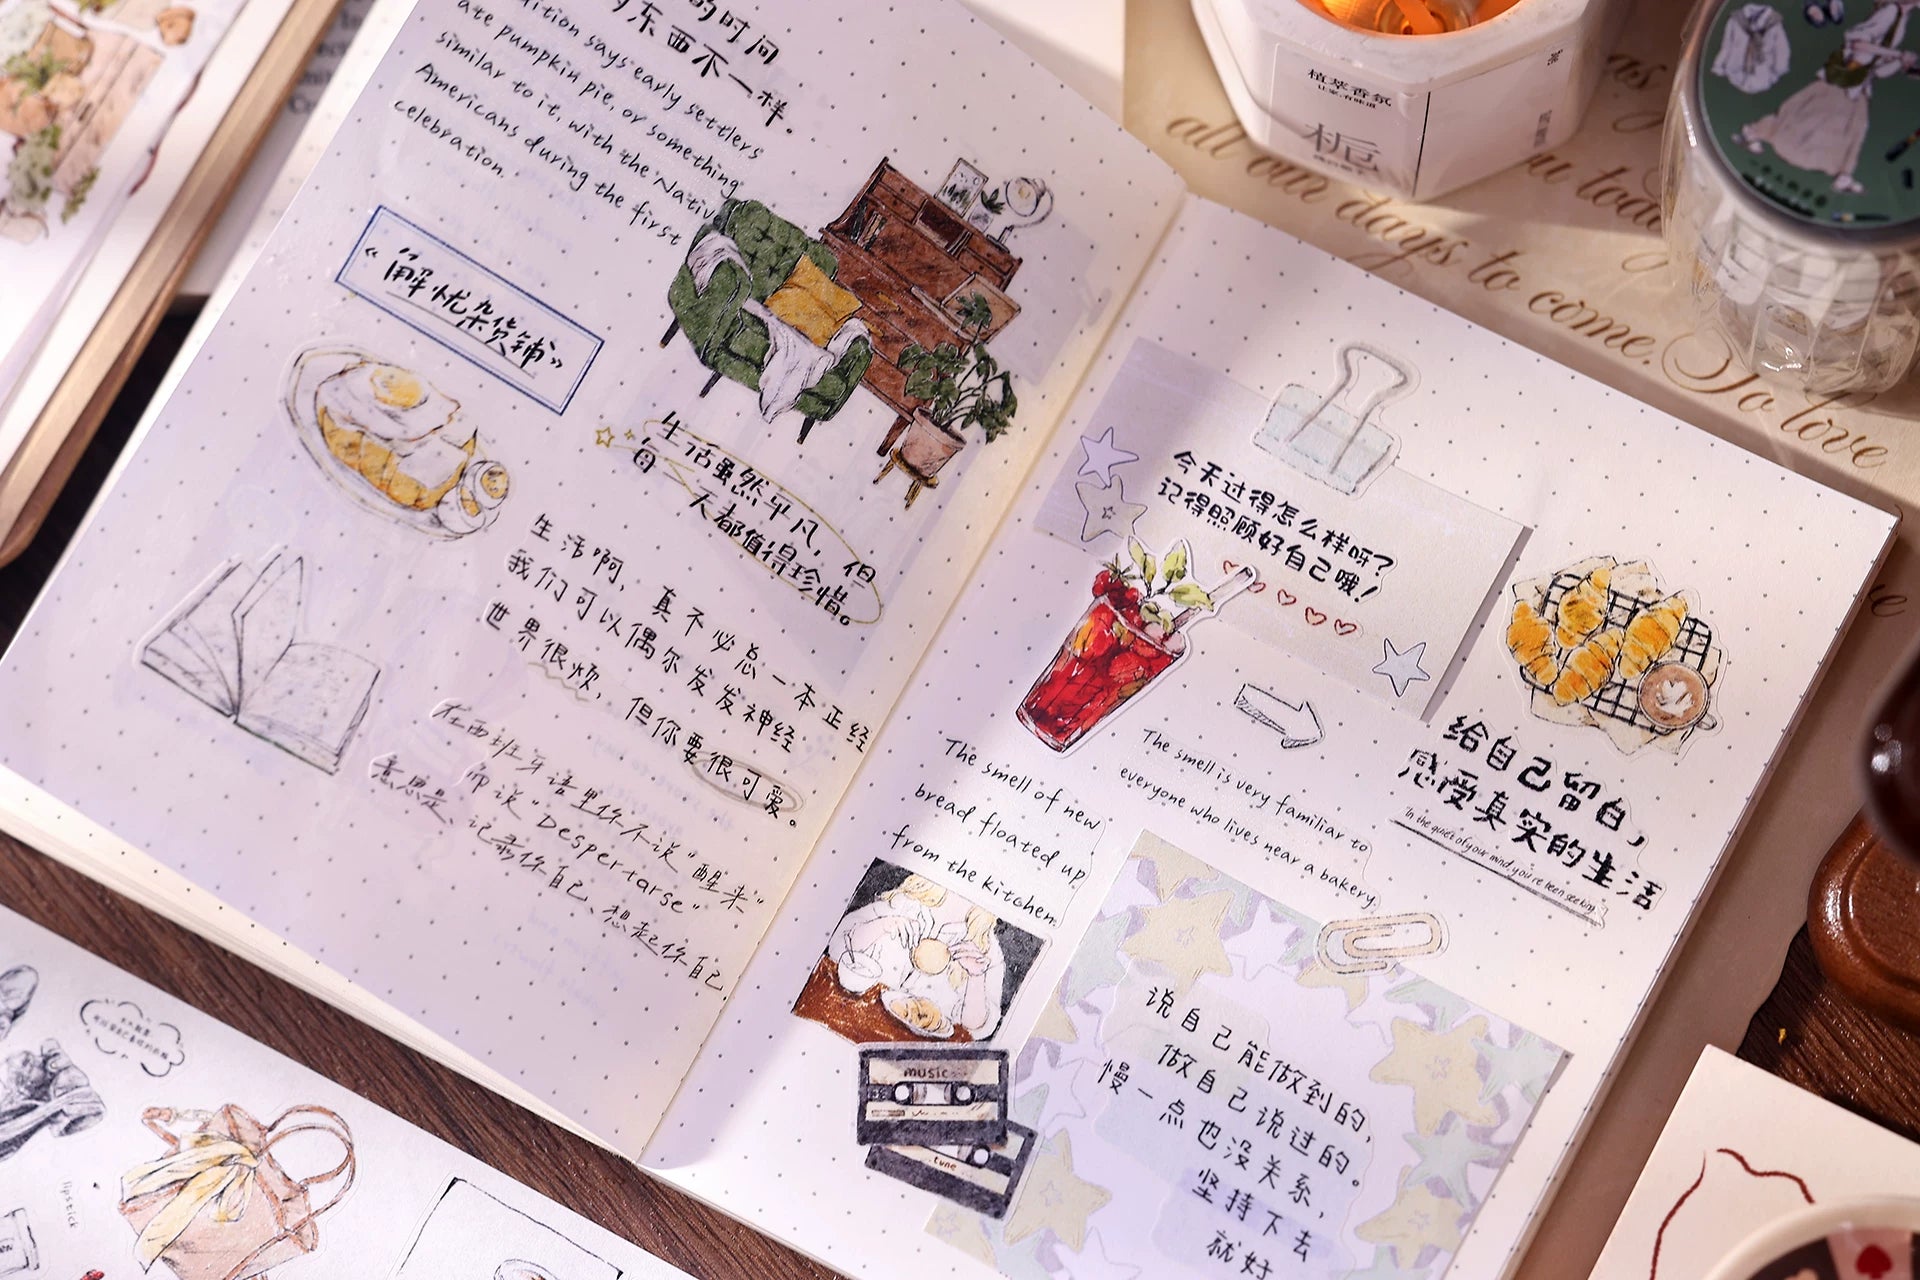 的时间
东西不一样。
says early settlers
ate pumpkin pie, or something
similar to it, with the Native
Americans during the first
celebration.
《解忧杂货铺》
生活虽然平凡，但
每一天都值得珍惜。
生活啊，真不必总一本正经
我们可以偶尔发发神经
世界很烦，但你要很可爱。
在西班牙语里你不说“醒来”
而说“Despertarse”
意思是、记录你自己、想起你自己.
今天过得怎么样呀？
记得照顾好自己哦！
The smell is very familiar to
everyone who lives near a bakery.
The smell of new
bread floated up
from the kitchen.
给自己留白，
感受真实的生活
"In the quiet of your mind, you've been seeking
music
tune
说自己能做到的，
做自己说过的。
慢一点也没关系，
坚持下去
就好
植萃香氛
让家，有味道
栀
all our days to come. So love
lipstick